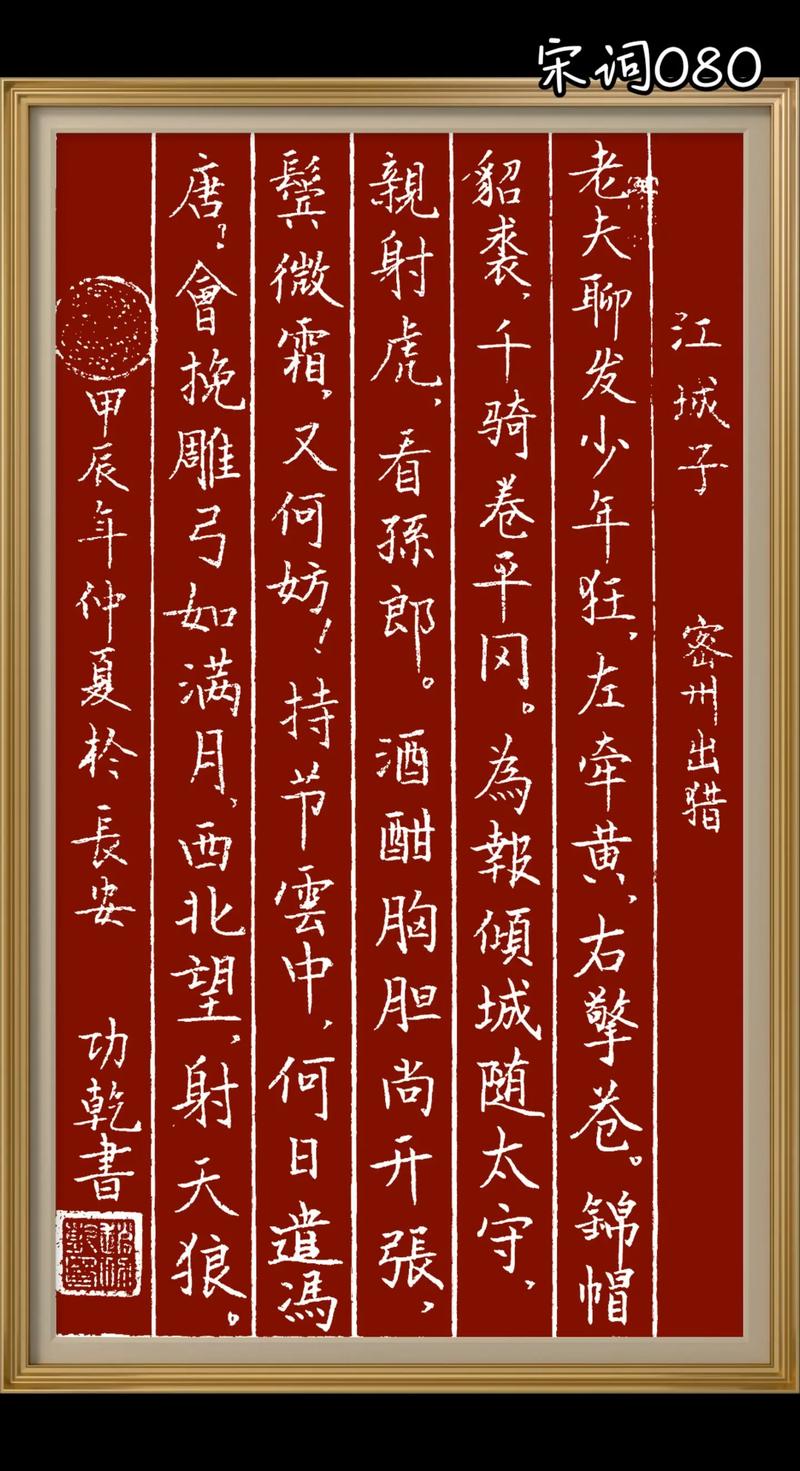 宋词080
江城子 密州出猎
老夫聊发少年狂，左牵黄，右擎卷。锦帽
貂裘，千骑卷平冈。為報傾城随太守，
親射虎，看孫郎。酒酣胸胆尚开張，
鬓微霜，又何妨！持节雲中，何日遣馮
唐？會挽雕弓如满月，西北望，射天狼。
甲辰年仲夏於長安 功乾書